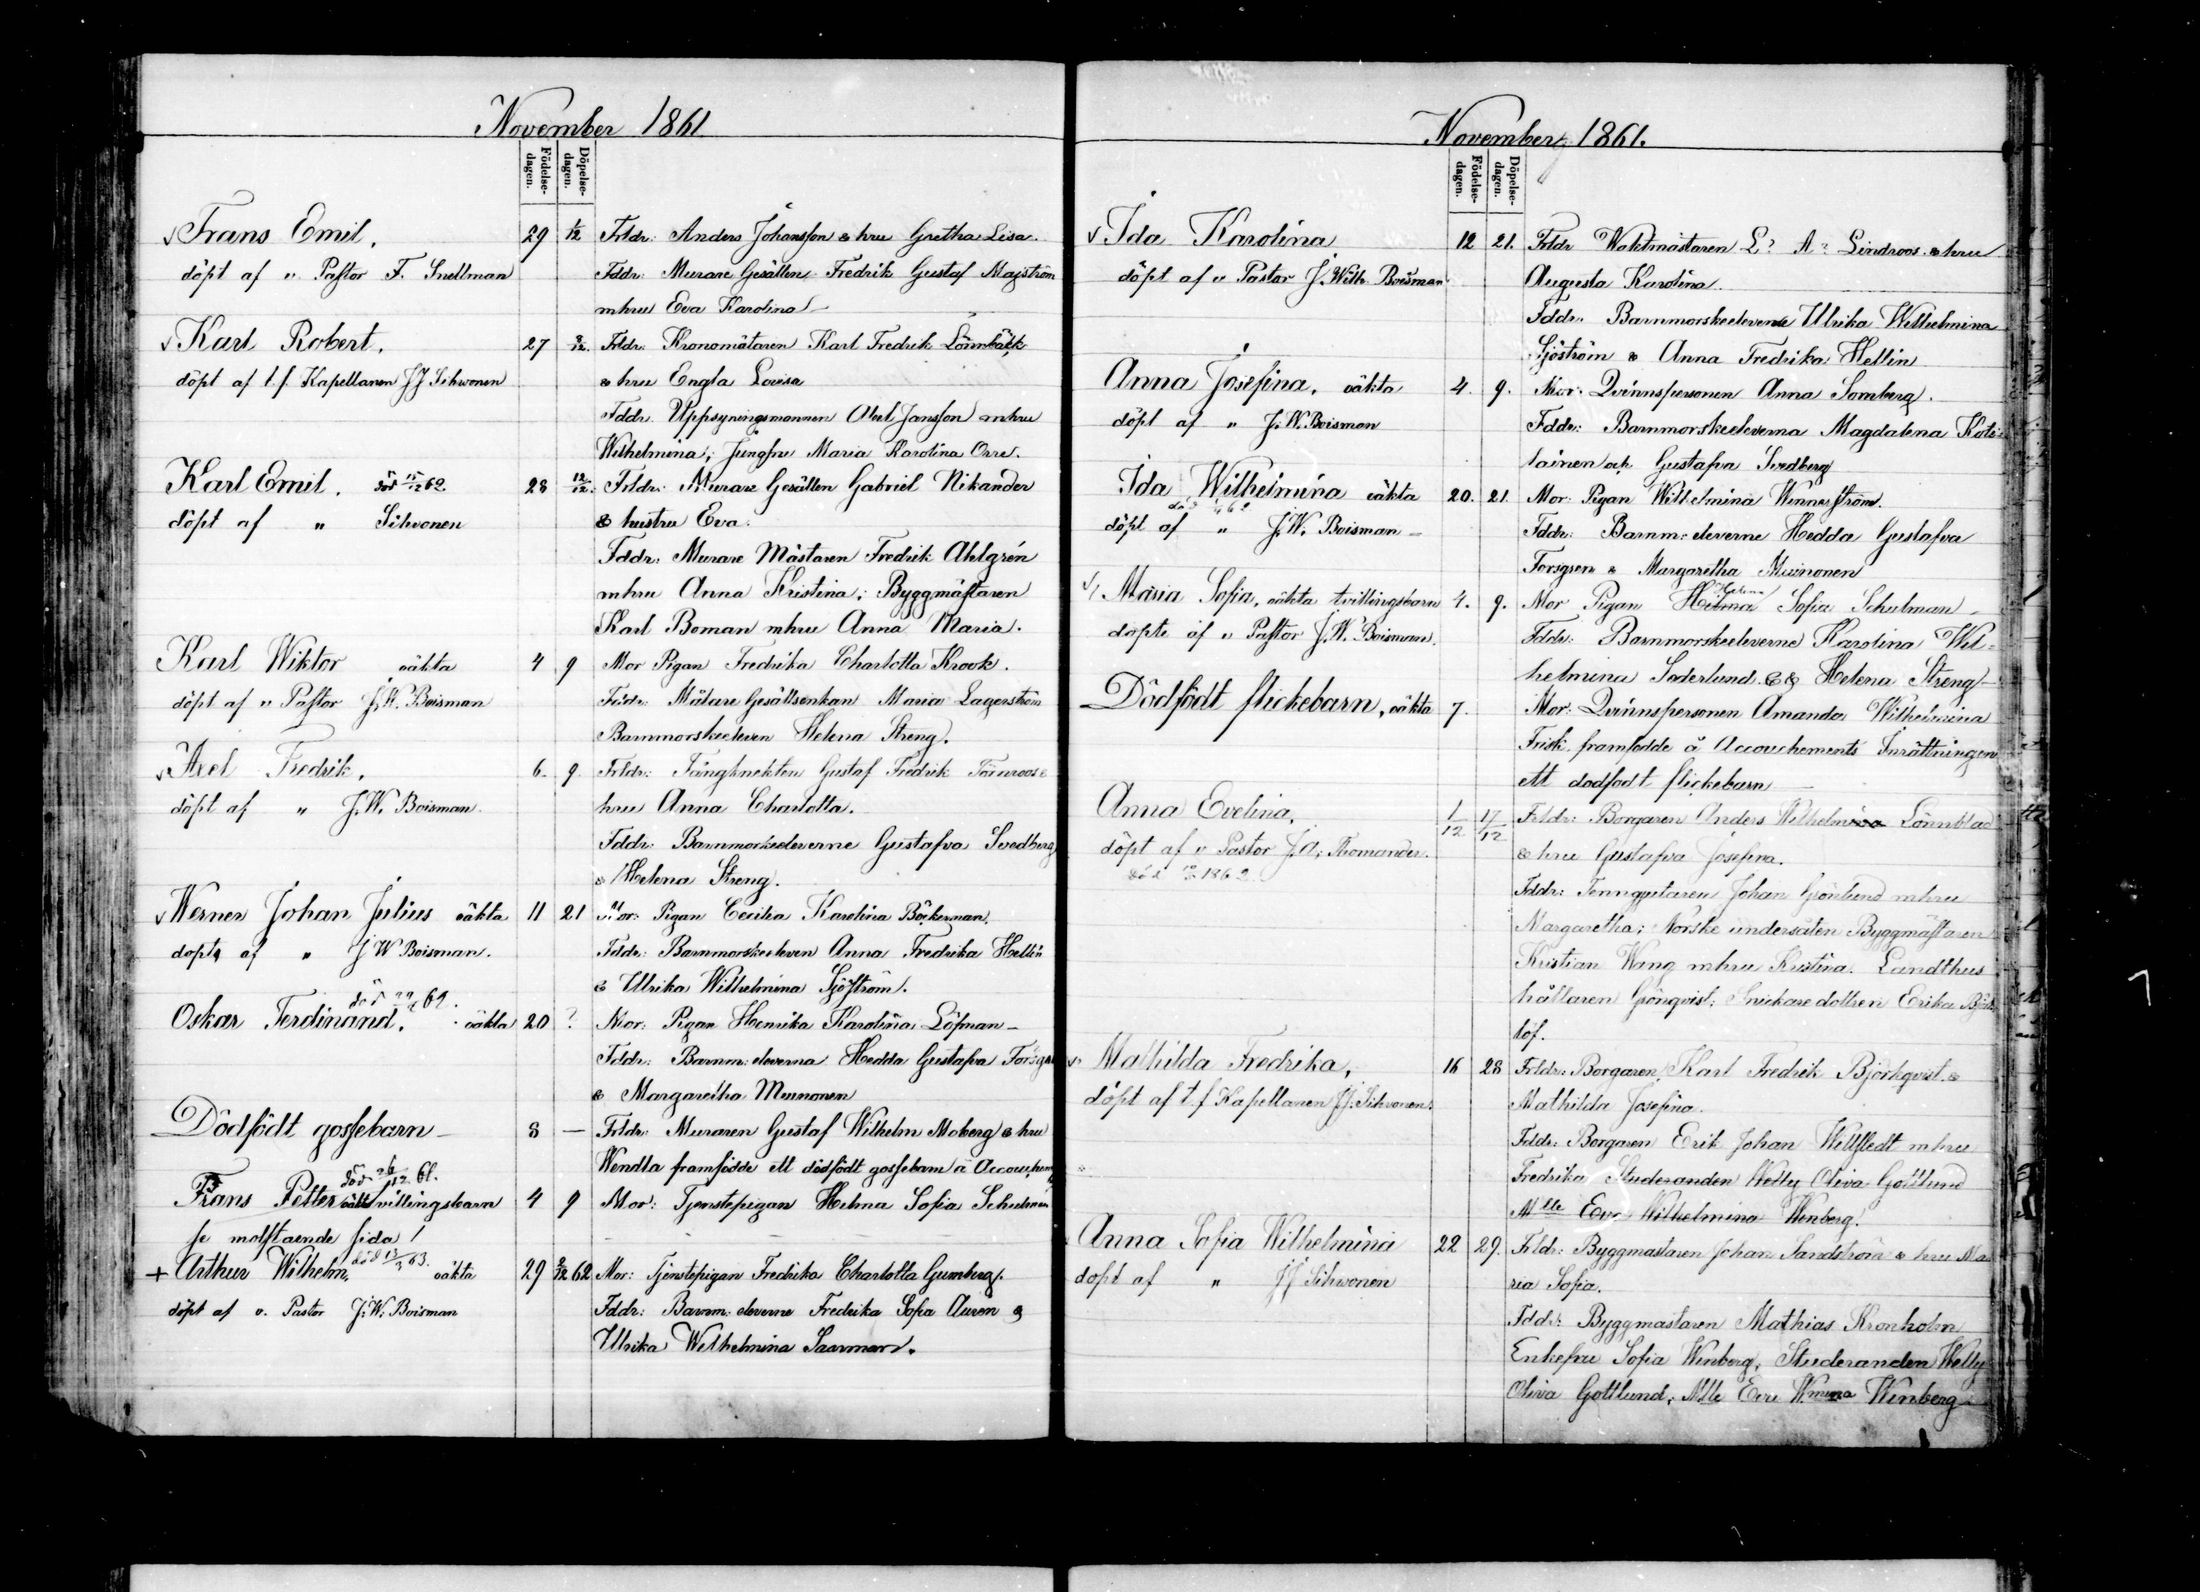 November 1861
Födelse-dagen. Döpelse-dagen.
Frans Emil. 29 1/12 Frldr: Anders Johansson & hru Gretha Lisa.
döpt af v Pastor F. Snellman Fddr: Murare Gesällen Fredrik Gustaf Majström
mhru Eva Karolina
Karl Robert. 27 8/12. Frldr: Kronomätaren Karl Fredrik Lönnbäck
döpt af t.f. Kapellanen JJ Sihvonen & hru Engla Lovisa
Fddr. Uppsyningsmannen Abel Jansson mhru
Wilhelmina; Jungfru Maria Karolina Orre.
Karl Emil. död 15/12 62 28 12/12. Frldr: Murare Gesällen Gabriel Nikander
döpt af " Sihvonen & hustru Eva.
Fddr: Murare Mästaren Fredrik Ahlgrén
mhru Anna Kristina; Byggmästaren
Karl Boman mhru Anna Maria.
Karl Wiktor oäkta 4 9 Mor Pigan Fredrika Charlotta Krook.
döpt af v Pastor J.W. Boisman Fddr: Målare Gesällsenkan Maria Lagerström
Barnmorskeeleven Helena Streng.
Axel Fredrik. 6. 9. Frldr: Fångknekten Gustaf Fredrik Törnroos &
döpt af " J.W. Boisman. hru Anna Charlotta.
Fddr: Barnmorskeeleverne Gustafva Svedberg
& Helena Streng.
Werner Johan Julius oäkta 11 21 Mor: Pigan Cecilia Karolina Böckerman.
döpt af " J W Boisman. Fddr: Barnmorskeeleven Anna Fredrika Hellin
& Ulrika Wilhelmina Sjöström.
Oskar Ferdinand. död 62. oäkta 20 ? Mor: Pigan Henrika Karolina Löfman
Fddr: Barnm: eleverna Hedda Gustafva Forsgren
& Margaretha Muinonen
Dödfödt gossebarn 8 — Frldr: Muraren Gustaf Wilhelm Moberg & hru
Wendla framfödde ett dödfödt gossebarn å Accouchem
Frans Petter död 26/12 61. oäkta tvillingsbarn 4 9 Mor: Tjenstepigan Helma Sofia Schulman
se motstående sida!
+ Arthur Wilhelm död 13/3 63. oäkta 29 2/12 62 Mor: Tjenstepigan Fredrika Charlotta Gumberg.
döpt af v. Pastor J.W. Boisman Fddr: Barnm: eleverne Fredrika Sofia Auren &
Ulrika Wilhelmina Saarman.
November 1861.
Födelse-dagen. Döpelse-dagen.
Ida Karolina 12 21. Frldr Waktmästaren L? A? Lindroos & hru
döpt af v Pastor J. Wilh. Boisman Augusta Karolina.
Fddr. Barnmorskeeleverne Ulrika Wilhelmina
Sjöström & Anna Fredrika Hellin
Anna Josefina, oäkta 4. 9. Mor: Qvinnspersonen Anna Somberg.
döpt af " J.W. Boisman Fddr: Barnmorskeeleverna Magdalena Koti-
lainen och Gustafva Svedberg
Ida Wilhelmina oäkta 20. 21. Mor: Pigan Wilhelmina Winnerström.
döpt af " J.W. Boisman Fddr: Barnm: eleverne Hedda Gustafva
Forsgren & Margaretha Muinonen
Maria Sofia, oäkta tvillingsbarn 4. 9. Mor Pigan Hilma Sofia Schulman
döpte af v Pastor J.W. Boisman. Fddr: Barnmorskeeleverne Karolina Wil-
helmina Söderlund & Helena Streng
Dödfödt flickebarn, oäkta 7. Mor: Qvinnspersonen Amanda Wilhelmina
Frisk, framfödde å Accouchements Inrättningen
ett dödfödt flickebarn
Anna Evelina. 1/12 17/12 Frldr: Borgaren Anders Wilhelm Lönnblad
döpt af v Pastor J.A. Thomander. & hru Gustafva Josefina.
död 1862. Fddr: Tenngjutaren Johan Grönlund mhru
Margaretha; Norske undersåten Byggmästaren
Kristian Wang mhru Kristina. Landthus
hållaren Grönqvist; Snickare dottren Erika Björk
löf.
Mathilda Fredrika, 16 28 Frldr: Borgaren Karl Fredrik Björkqvist &
döpt af t.f Kapellanen J.J. Sihvonen. Mathilda Josefina.
Fddr: Borgaren Erik Johan Wellstedt mhru
Fredrika; Studeranden Welly Oliva Gottlund
Mlle Eva Wilhelmina Wenberg.
Anna Sofia Wilhelmina 22 29. Frldr: Byggmästaren Johan Sandström & hru Ma
döpt af " JJ Sihvonen ria Sofia.
Fddr: Byggmästaren Mathias Kronholm
Enkefru Sofia Wenberg, Studeranden Welly
Oliva Gottlund, Mlle Eva W.mina Wenberg